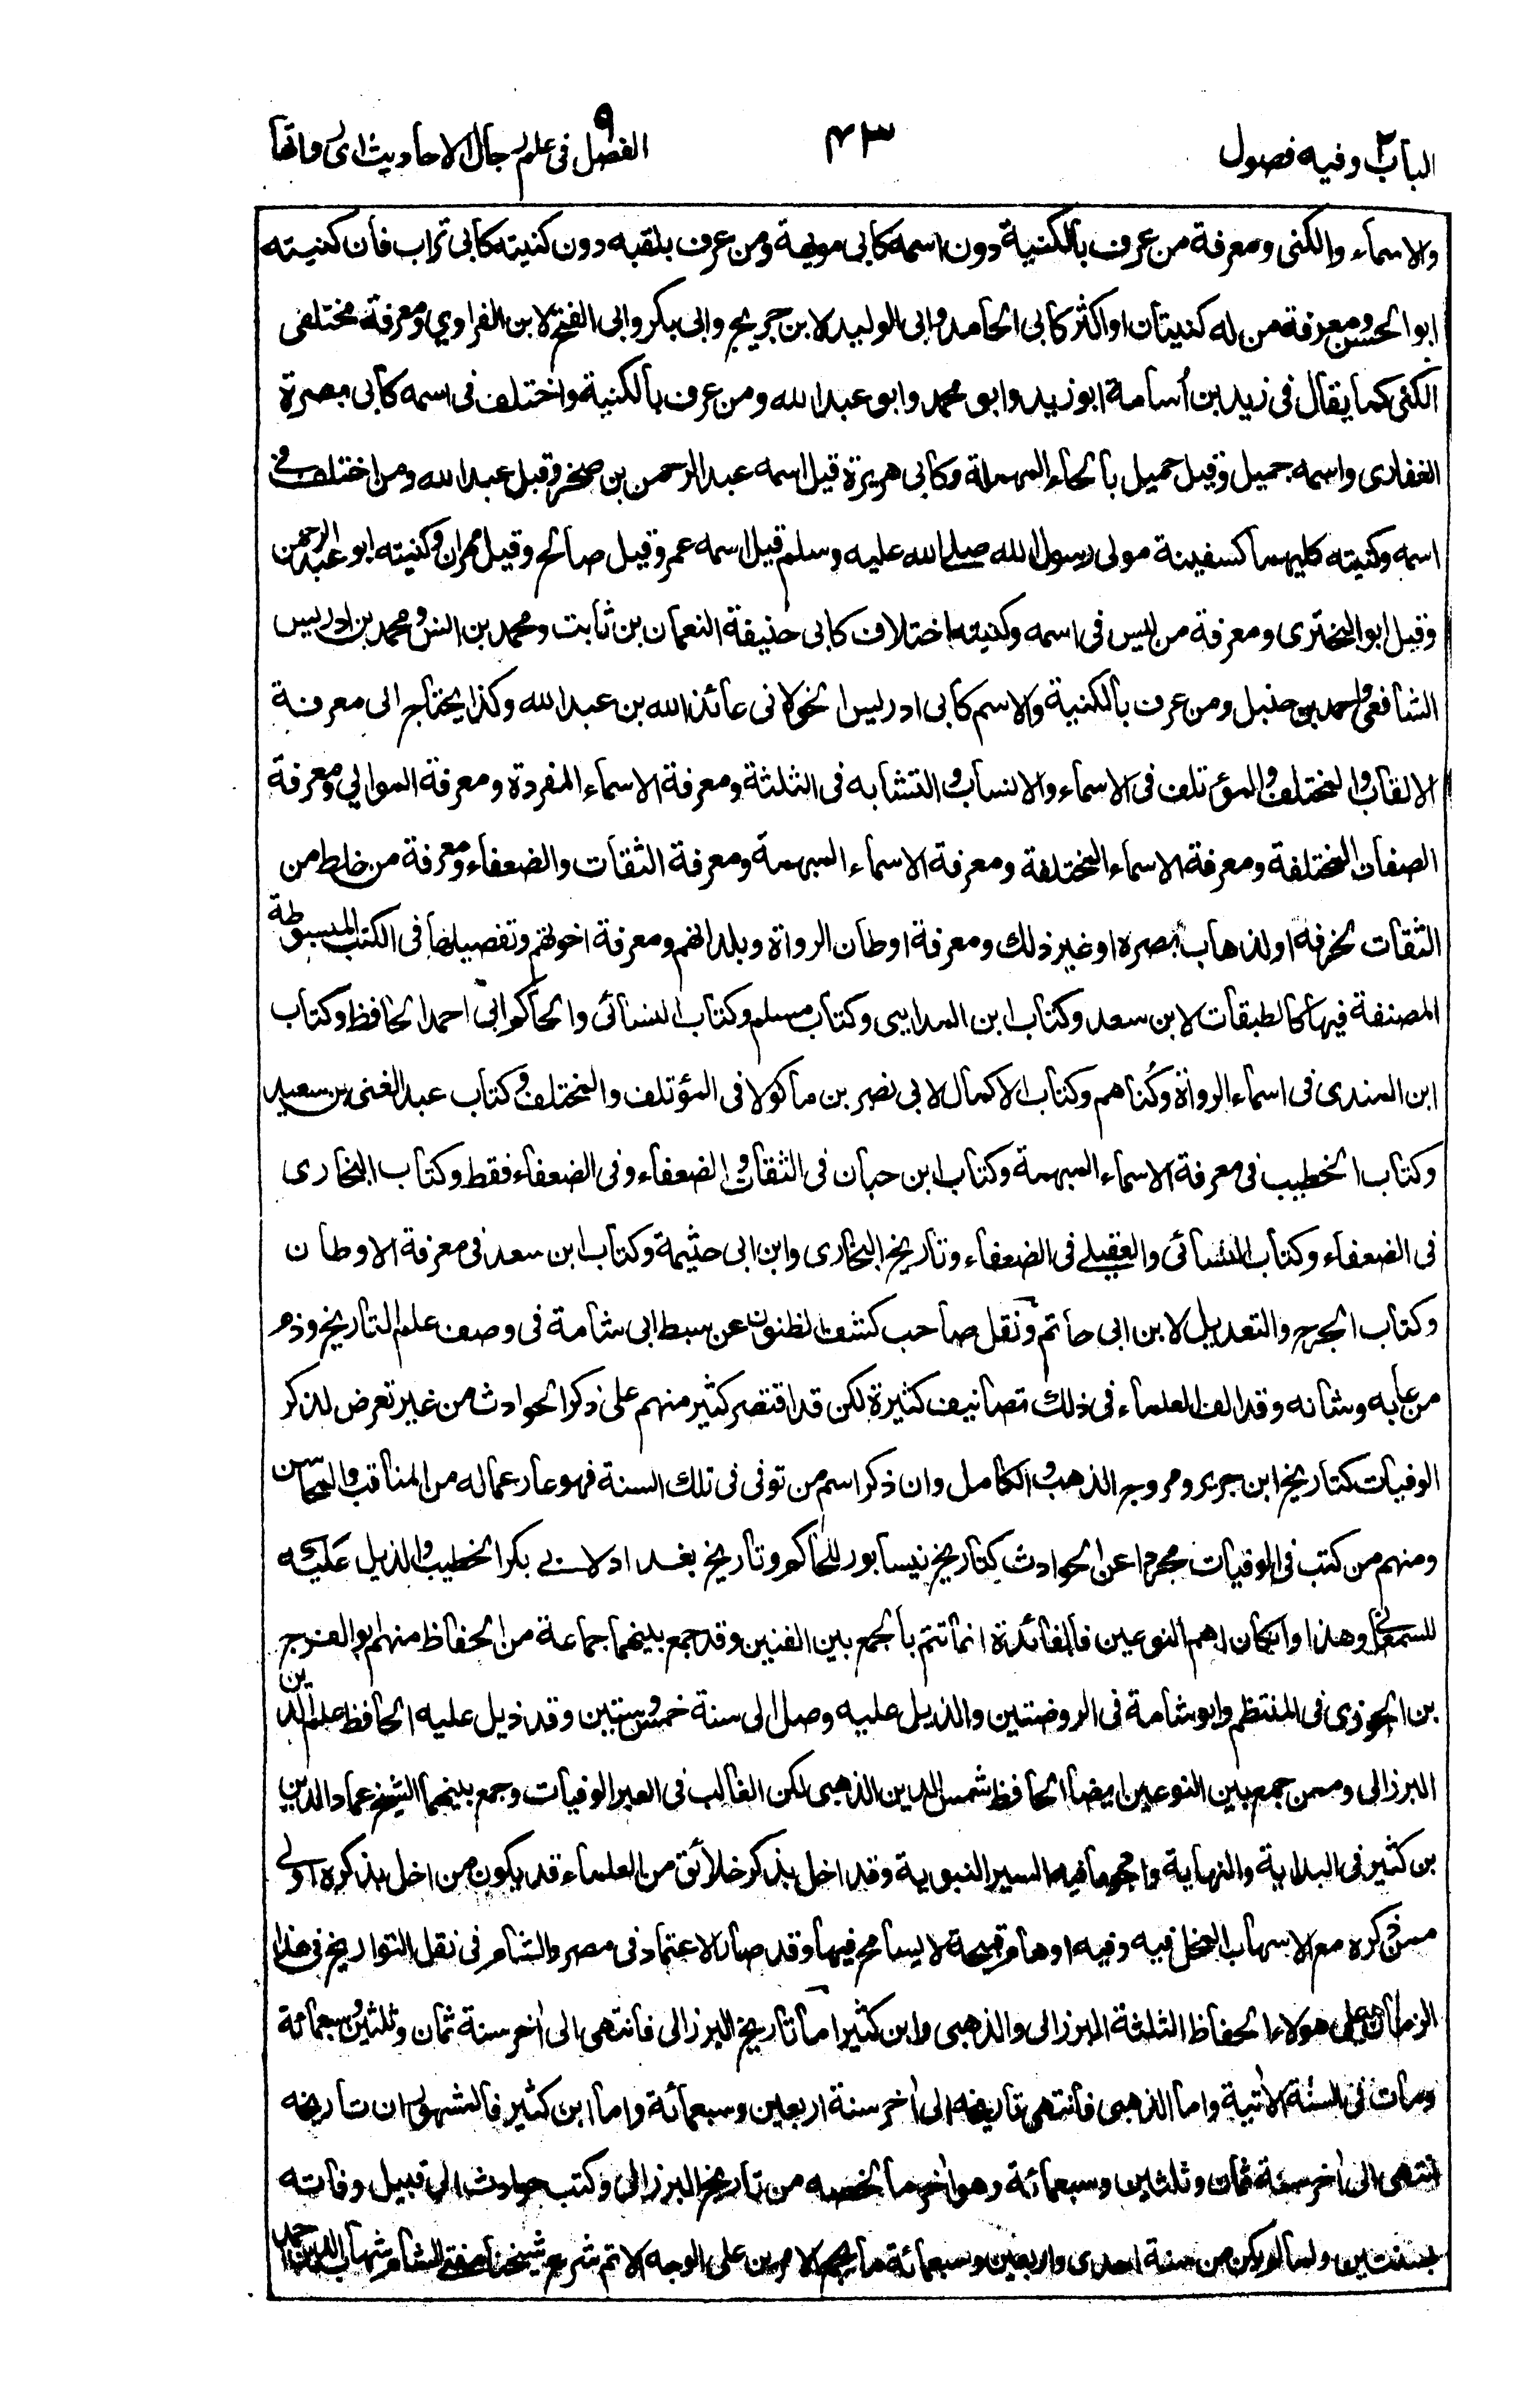 الباب ٢ وفيه فصول
٤٣
الفصل ٩ في علم رجال الاحاديث اى رواتها
والاسماء والكنى ومعرفة من عرف بالكنية دون اسمه كابى مويهبة ومن عرف بلقبه دون كنيته كابى تراب فان كنيته
ابو الحسن ومعرفة من له كنيتان او اكثر كابى الحامد وابى الوليد لابن جريج وابى بكر وابى الفتح لابن الفراوي ومعرفة مختلفى
الكنى كما يقال فى زيد بن أسامة ابو زيد وابو محمد وابو عبد الله ومن عرف بالكنية واختلف فى اسمه كابى بصرة
الغفارى واسمه جميل وقيل حميل بالحاء المهملة وكابى هريرة قيل اسمه عبد الرحمن بن صخر وقيل عبد الله ومن اختلف في
اسمه وكنيته كليهما كسفينة مولى رسول الله صلى الله عليه وسلم قيل اسمه عمر وقيل صالح وقيل مهران وكنيته ابو عبد الرحمن
وقيل ابو البخترى ومعرفة من ليس فى اسمه وكنيته اختلاف كابى حنيفة النعمان بن ثابت ومحمد بن انس ومحمد بن ادريس
الشافعى واحمد بن حنبل ومن عرف بالكنية والاسم كابى ادريس الخولانى عائذ الله بن عبد الله وكذا يحتاج الى معرفة
الالقاب والمختلف والمؤتلف فى الاسماء والانساب والتشابه فى الثلثة ومعرفة الاسماء المفردة ومعرفة الموالي ومعرفة
الصفات المختلفة ومعرفة الاسماء المختلفة ومعرفة الاسماء المبهمة ومعرفة الثقات والضعفاء ومعرفة من خلط من
الثقات لخرفه او لذهاب بصره او غير ذلك ومعرفة اوطان الرواة وبلدانهم ومعرفة اخوتهم وتفصيلها فى الكتب المبسوطة
المصنفة فيها كالطبقات لابن سعد وكتاب ابن المدايبى وكتاب مسلم وكتاب النسائى والحاكم ابى احمد الحافظ وكتاب
ابن المندى فى اسماء الرواة وكُناهم وكتاب الاكمال لابى نصر بن ماكولا فى المؤتلف والمختلف وكتاب عبد الغنى بن سعيد
وكتاب الخطيب فى معرفة الاسماء المبهمة وكتاب ابن حبان فى الثقات والضعفاء وفى الضعفاء فقط وكتاب البخارى
فى الضعفاء وكتاب النسائى والعقيلى فى الضعفاء وتاريخ البخارى وابن ابى حثيمة وكتاب ابن سعد فى معرفة الاوطان
وكتاب الجرح والتعديل لابن ابى حاتم ونقل صاحب كشف الظنون عن سبط ابى شامة فى وصف علم التاريخ وذم
من عابه وشانه وقد الف العلماء فى ذلك تصانيف كثيرة لكن قد اقتصر كثير منهم على ذكر الحوادث من غير تعرض لذكر
الوفيات كتاريخ ابن جرير ومروج الذهب والكامل وان ذكر اسم من توفى فى تلك السنة فهو عار عما له من المناقب والمحاسن
ومنهم من كتب فى الوفيات مجردا عن الحوادث كتاريخ نيسابور للحاكم وتاريخ بغداد لابى بكر الخطيب والذيل عليه
للسمعانى وهذا وان كان اهم النوعين فالفائدة انما تتم بالجمع بين الفنين وقد جمع بينهما جماعة من الحفاظ منهم ابو الفرج
بن الجوزى فى المنتظم وابو شامة فى الروضتين والذيل عليه وصل الى سنة خمس وستين وقد ذيل عليه الحافظ علم الدين
البرزالى وممن جمع بين النوعين ايضا الحافظ شمس الدين الذهبى لكن الغالب فى العبر الوفيات وجمع بينهما الشيخ عماد الدين
بن كثير فى البداية والنهاية واجود ما فيه السير النبوية وقد اخل بذكر خلائق من العلماء قد يكون من اخل بذكره اولى
ممن ذكره مع الاسهاب المخل فيه وفيه اوهام قبيحة لا يسامح فيها وقد صار الاعتماد فى مصر والشام فى نقل التواريخ فى هذا
الزمان على هولاء الحفاظ الثلثة البرزالى والذهبى وابن كثير اما تاريخ البرزالى فانتهى الى اٰخر سنة ثمان وثلثين وسبعمائة
ومات فى السنة الاٰتية واما الذهبى فانتهى تاريخه الى اٰخر سنة اربعين وسبعمائة واما ابن كثير فالمشهور ان تاريخه
انتهى الى اٰخر سنة ثمان وثلثين وسبعمائة وهو اٰخر ما لخصه من تاريخ البرزالى وكتب حوادث الى قبيل وفاته
بسنتين ولما لم يكن من سنة احدى واربعين وسبعمائة ما يجمع الامرين على الوجه الاتم شرع شيخنا مفتى الشام شهاب الدين احمد